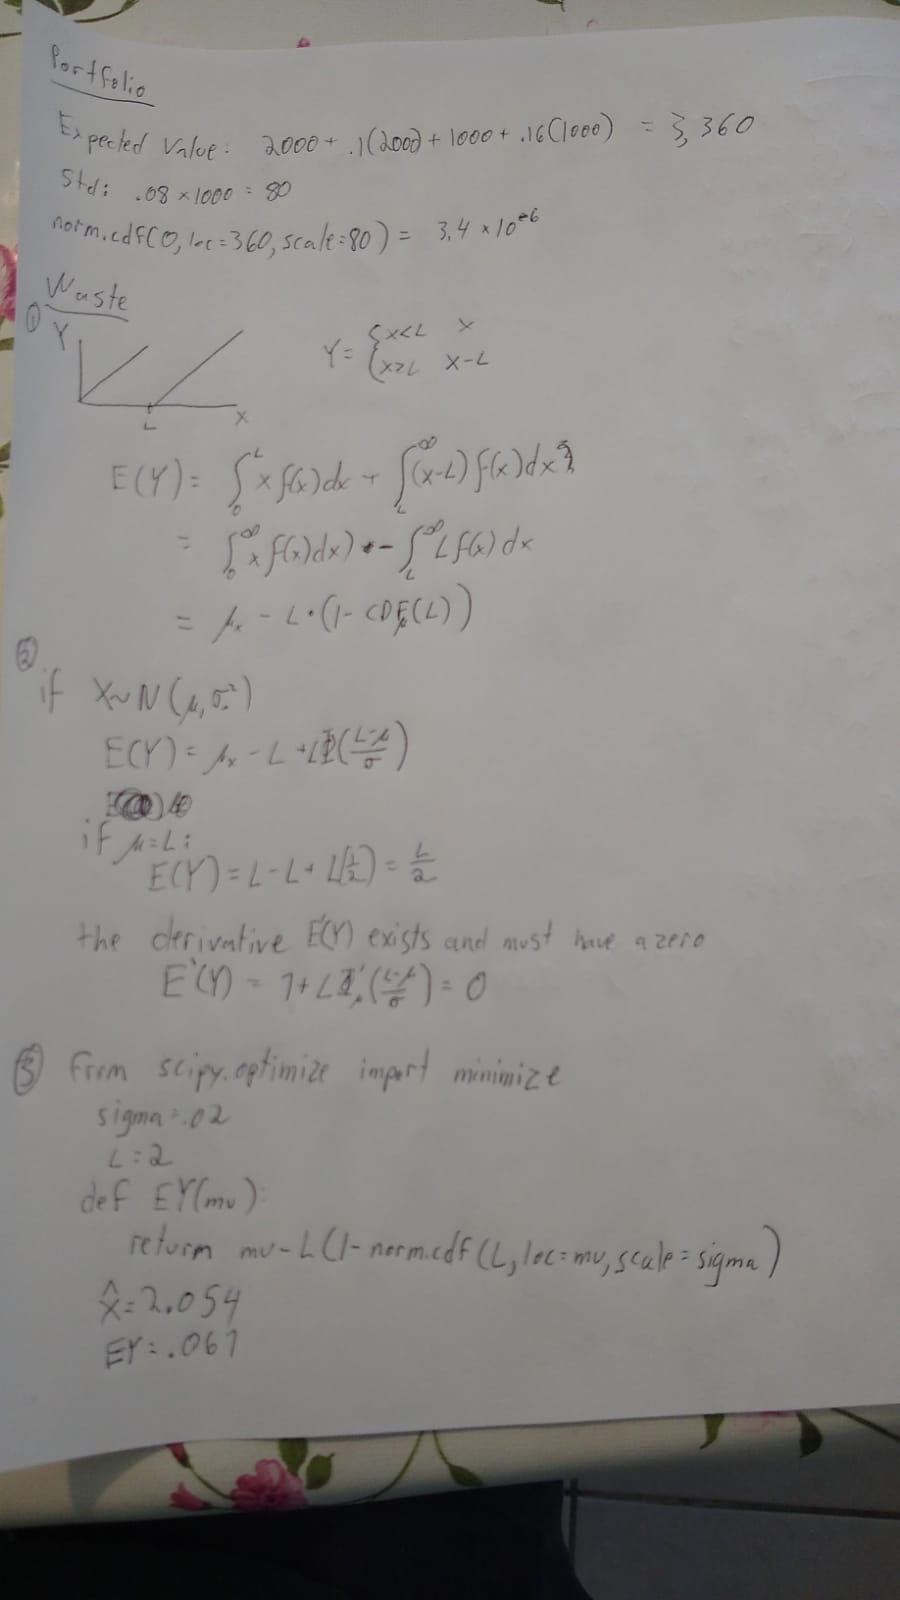 Portfolio
Expected Value: 2000 + .1(2000) + 1000 + .16(1000) = 3,360
Std: .08 × 1000 = 80
norm.cdf(0, loc=360, scale=80) = 3.4 × 10^-6
Waste
① Y
L X
Y = { x<L x
x≥L x-L
E(Y) = ∫₀ᴸ x f(x)dx + ∫_L^∞ (x-L) f(x)dx
= ∫₀^∞ x f(x)dx) - ∫_L^∞ L f(x)dx
= μₓ - L·(1- CDF(L))
②
if X~N(μ,σ²)
E(Y) = μₓ - L + LΦ((L-μ)/σ)
if μ=L:
E(Y) = L-L+ L(1/2) = L/2
the derivative E'(Y) exists and must have a zero
E'(Y) = 1+LΦ'μ((L-μ)/σ) = 0
③ from scipy.optimize import minimize
sigma=.02
L=2
def EY(mu):
return mu-L(1-norm.cdf(L,loc=mu,scale=sigma)
x̂=2.054
EY=.061